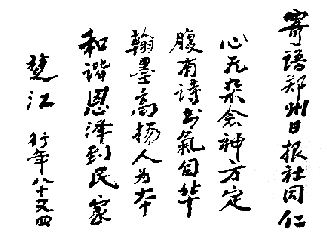 寄语郑州日报社同仁
心无杂念神方定
腹有诗书气自华
翰墨高扬人为本
和谐恩泽到民家
楚江 行年八十又四